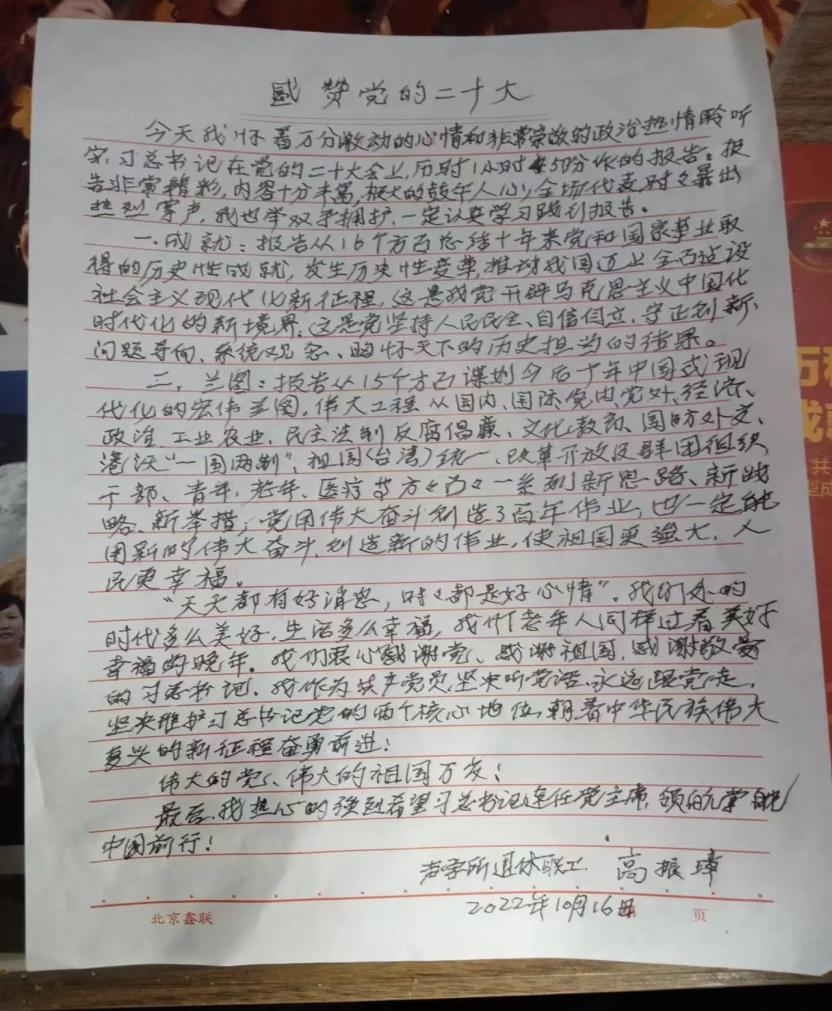 感赞党的二十大
今天我怀着万分激动的心情和非常崇敬的政治热情聆听
完习总书记在党的二十大会上,历时1小时50分作的报告。报
告非常精彩,内容十分丰富,极大的鼓午人心,全场代表时々暴出
热烈掌声,我也举双手拥护,一定认真学习践行报告。
一.成就:报告从16个方面总结十年来党和国家事业取
得的历史性成就,发生历史性变革,推动我国迈上全面建设
社会主义现代化新征程,这是我党开辟马克思主义中国化
时代化的新境界,这是党坚持人民民主、自信自立、守正创新、
问题导向、系统观念、胸怀天下的历史担当的结果。
二.兰图:报告从15个方面谋划今后十年中国式现
代化的宏伟兰图,伟大工程从国内、国际党内,党外、经济、
政治、工业农业、民主法制反腐倡廉、文化教育、国防外交、
港沃“一国两制”、祖国(台湾)统一、改革开放及群团组织
干部、青年、老年、医疗等方々面々一系列新思路、新战
略、新举措,党用伟大奋斗创造了百年伟业,也一定能
用新的伟大奋斗,创造新的伟业,使祖国更强大,人
民更幸福。
“天天都有好消息,时々都是好心情”。我们处的
时代多么美好,生活多么幸福,我们老年人同样过着美好
幸福的晚年。我们衷心感谢党、感谢祖国,感谢敬爱
的习总书记。我作为共产党员,坚决听党话、永远跟党走,
坚决维护习总书记党的两个核心地位,朝着中华民族伟大
复兴的新征程奋勇前进!
伟大的党、伟大的祖国万岁!
最后,我热心的强烈希望习总书记连任党主席,领航掌舵
中国前行!
声学所退休职工 高振璋
2022年10月16日
北京鑫联 页